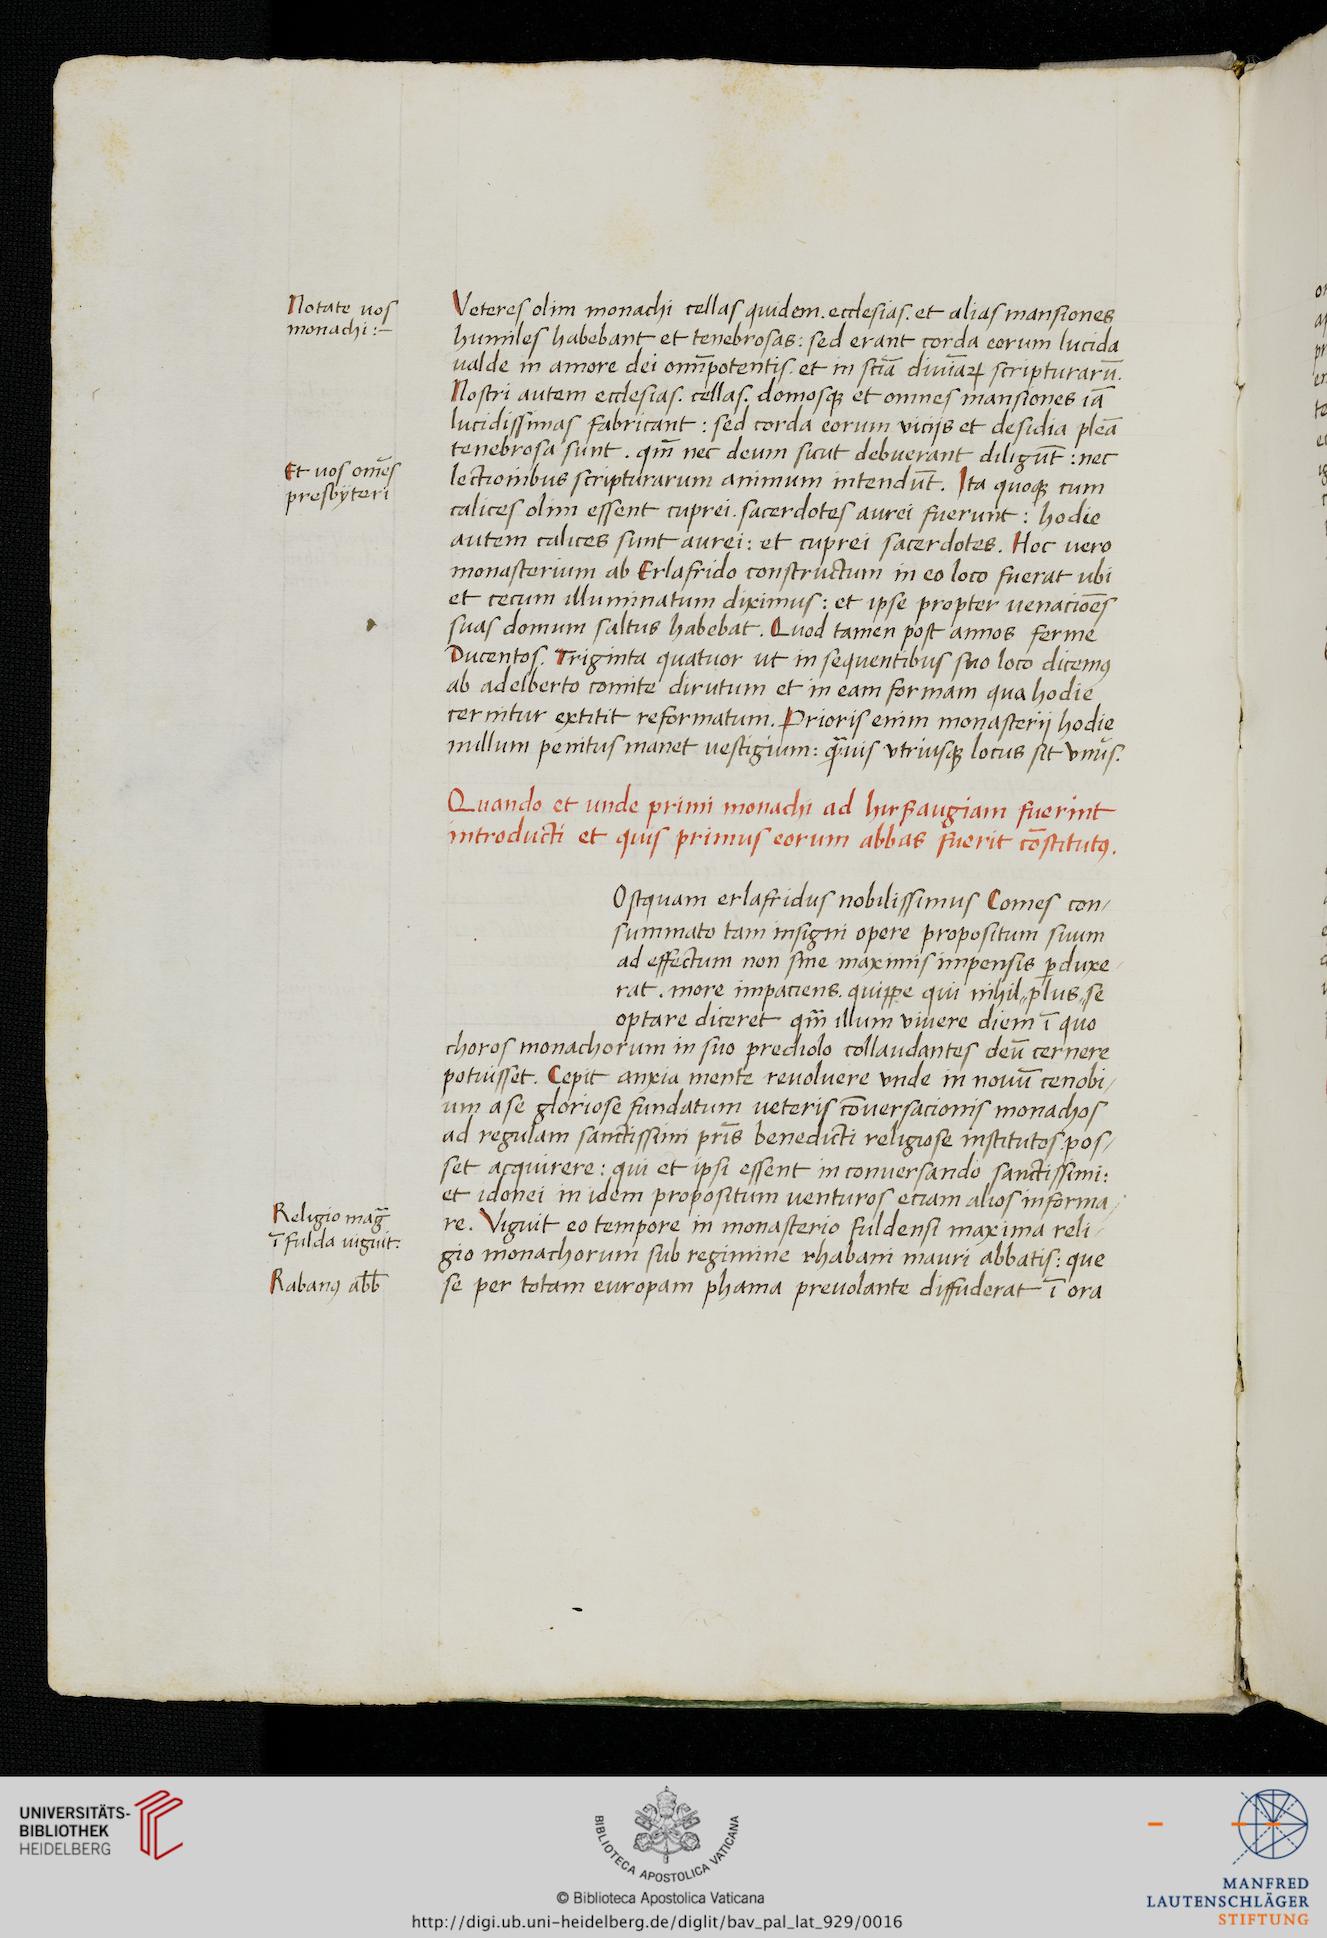 Notate vos
monachi :-
Et vos om̄es
presbyteri
Religio mag̅
ī fulda viguit:
Rabanꝰ abb̄
Veteres olim monachi cellas quidem. ecclesias. et alias mansiones
humiles habebant et tenebrosas: sed erant corda eorum lucida
valde in amore dei om̄ipotentis. et in sciā diuīaꝝ scripturarū.
Nostri autem ecclesias. cellas. domosqꝫ et omnes mansiones iā
lucidissimas fabricant: sed corda eorum vicijs et desidia pleā
tenebrosa sunt. qm̄ nec deum sicut debuerant diligūt: nec
lectionibus scripturarum animum intendūt. Ita quoqꝫ cum
calices olim essent cuprei. sacerdotes aurei fuerunt: hodie
autem calices sunt aurei: et cuprei sacerdotes. Hoc vero
monasterium ab Erlafrido constructum in eo loco fuerat ubi
et cecum illuminatum diximus: et ipse propter uenacioēs
suas domum saltus habebat. Quod tamen post annos ferme
Ducentos. Triginta quatuor ut in sequentibus suo loco dicemꝰ
ab adelberto comite dirutum et in eam formam qua hodie
cernitur extitit reformatum. Prioris enim monasterij hodie
nullum penitus manet vestigium: qͣuis vtriusqꝫ locus sit vnus.
Quando et unde primi monachi ad hirsaugiam fuerint
introducti et quis primus eorum abbas fuerit cōstitutꝰ.
Ostquam erlafridus nobilissimus Comes con/
summato tam insigni opere propositum suum
ad effectum non sine maximis impensis ꝑduxe/
rat. more impaciens. quippe qui nihil plus se
optare diceret qm̄ illum viuere diem ī quo
choros monachorum in suo prediolo collaudantes deū cernere
potuisset. Cepit anxia mente reuoluere vnde in nouū cenobi/
um a se gloriose fundatum veteris cōuersacionis monachos
ad regulam sanctissimi pr̄is benedicti religiose institutos. pos/
set acquirere: qui et ipsi essent in conuersando sanctissimi:
et idonei in idem propositum venturos eciam alios informa/
re. Viguit eo tempore in monasterio fuldensi maxima reli/
gio monachorum sub regimine rhabani mauri abbatis: que
se per totam europam phama preuolante diffuderat ī ora
UNIVERSITÄTS-
BIBLIOTHEK
HEIDELBERG
BIBLIOTECA APOSTOLICA VATICANA
© Biblioteca Apostolica Vaticana
http://digi.ub.uni-heidelberg.de/diglit/bav_pal_lat_929/0016
MANFRED
LAUTENSCHLÄGER
STIFTUNG